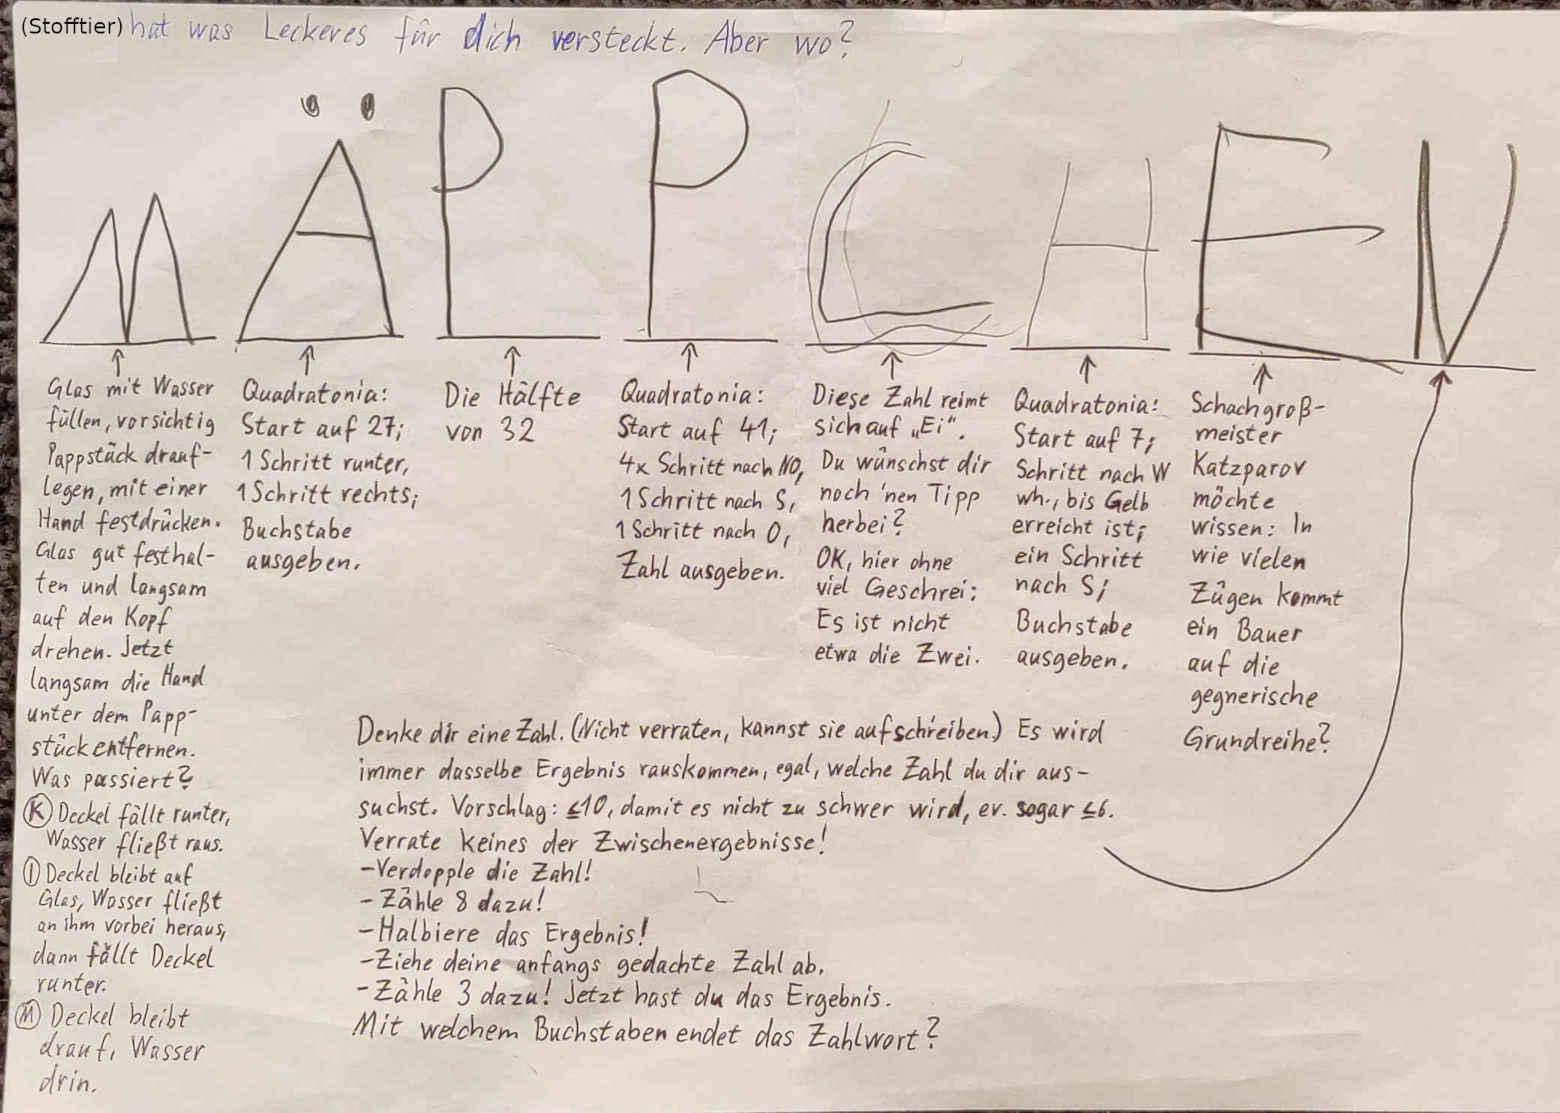 (Stofftier) hat was Leckeres für dich versteckt. Aber wo?
MÄPPCHEN
Glas mit Wasser
füllen, vorsichtig
Pappstück drauf-
legen, mit einer
Hand festdrücken.
Glas gut festhal-
ten und langsam
auf den Kopf
drehen. Jetzt
langsam die Hand
unter dem Papp-
stück entfernen.
Was passiert?
(K) Deckel fällt runter,
Wasser fließt raus.
(I) Deckel bleibt auf
Glas, Wasser fließt
an ihm vorbei heraus,
dann fällt Deckel
runter.
(M) Deckel bleibt
drauf, Wasser
drin.
Quadratonia:
Start auf 27;
1 Schritt runter,
1 Schritt rechts;
Buchstabe
ausgeben.
Die Hälfte
von 32
Quadratonia:
Start auf 41;
4x Schritt nach NO,
1 Schritt nach S,
1 Schritt nach O,
Zahl ausgeben.
Diese Zahl reimt
sich auf „Ei“.
Du wünschst dir
noch 'nen Tipp
herbei?
OK, hier ohne
viel Geschrei:
Es ist nicht
etwa die Zwei.
Quadratonia:
Start auf 7;
Schritt nach W
wh., bis Gelb
erreicht ist;
ein Schritt
nach S;
Buchstabe
ausgeben.
Schachgroß-
meister
Katzparov
möchte
wissen: In
wie vielen
Zügen kommt
ein Bauer
auf die
gegnerische
Grundreihe?
Denke dir eine Zahl. (Nicht verraten, kannst sie aufschreiben.) Es wird
immer dasselbe Ergebnis rauskommen, egal, welche Zahl du dir aus-
suchst. Vorschlag: ≤10, damit es nicht zu schwer wird, ev. sogar ≤6.
Verrate keines der Zwischenergebnisse!
-Verdopple die Zahl!
- Zähle 8 dazu!
-Halbiere das Ergebnis!
-Ziehe deine anfangs gedachte Zahl ab.
-Zähle 3 dazu! Jetzt hast du das Ergebnis.
Mit welchem Buchstaben endet das Zahlwort?